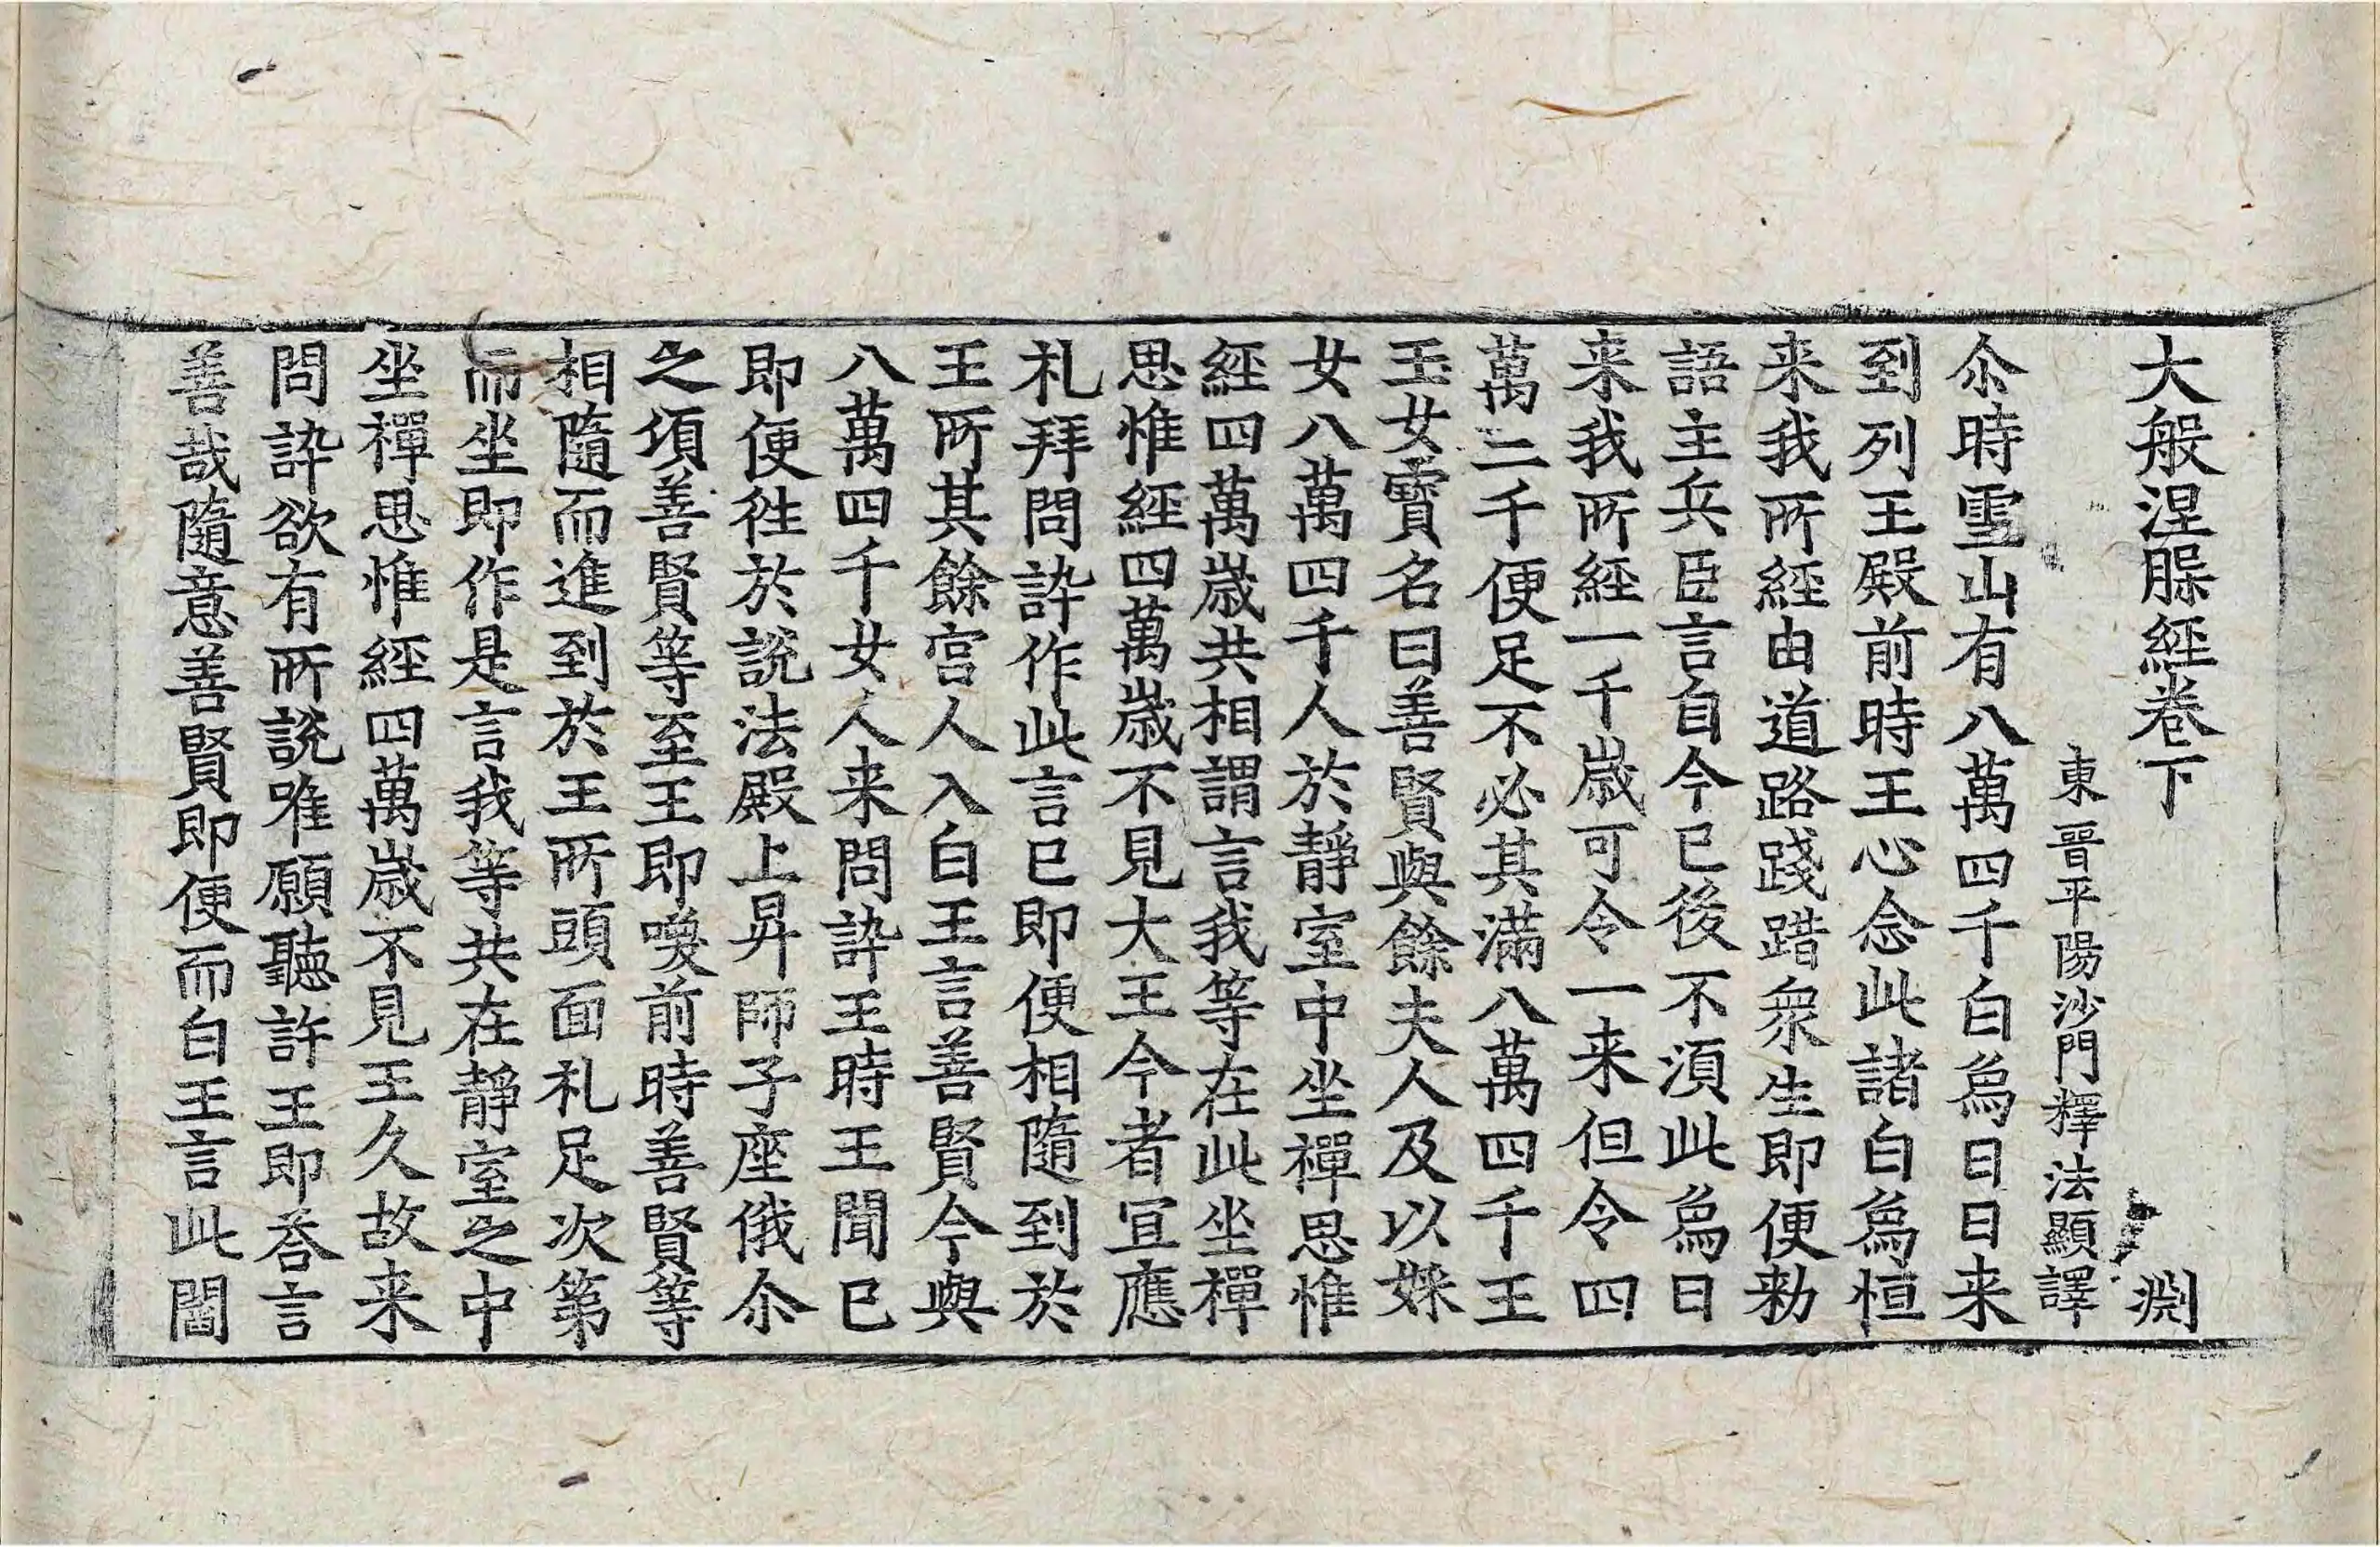 大般涅槃經卷下 淵
東晉平陽沙門釋法顯譯
尒時雪山有八萬四千白烏日日来
到列王殿前時王心念此諸白烏恒
来我所經由道路踐踖衆生即便勑
語主兵臣言自今已後不湏此烏日
来我所經一千歳可令一来但令四
萬二千便足不必其滿八萬四千王
玉女寳名曰善賢與餘夫人及以婇
女八萬四千人於靜室中坐禪思惟
經四萬歳共相謂言我等在此坐禪
思惟經四萬歳不見大王今者宜應
礼拜問訊作此言已即便相隨到於
王所其餘宫人入白王言善賢今與
八萬四千女人来問訊王時王聞已
即便徃於說法殿上昇師子座俄尒
之湏善賢等至王即喚前時善賢等
相隨而進到於王所頭面礼足次第
而坐即作是言我等共在靜室之中
坐禪思惟經四萬歳不見王久故来
問訊欲有所說唯願聽許王即荅言
善哉隨意善賢即便而白王言此閻